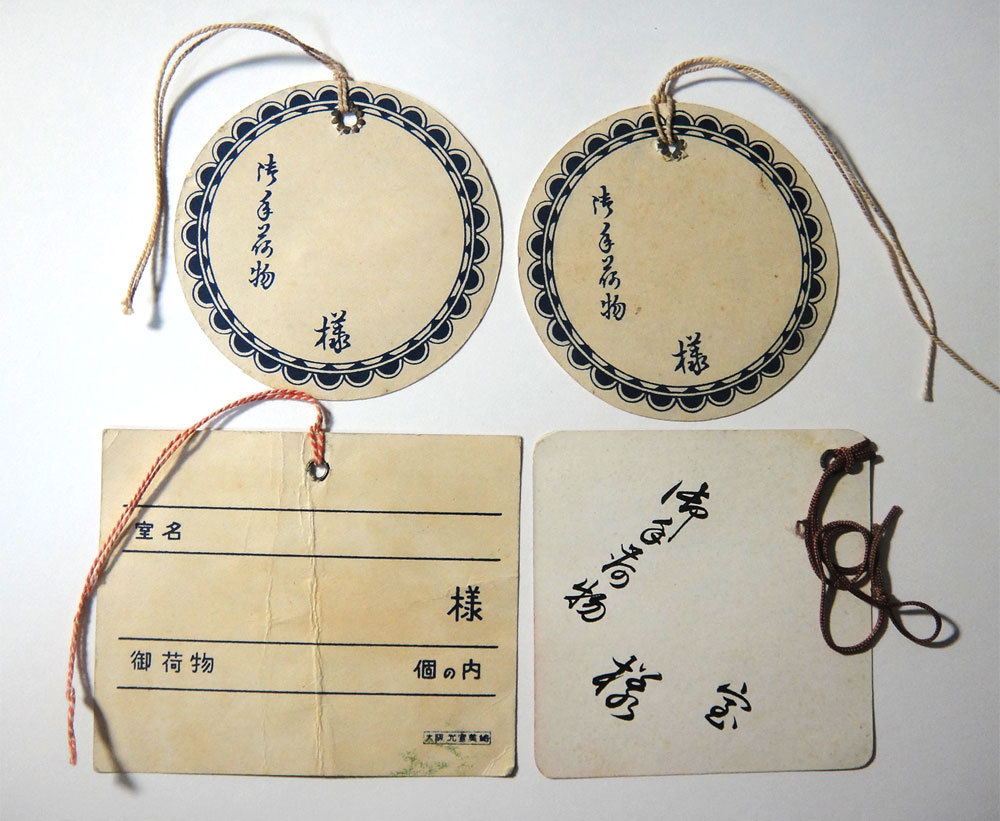 御手荷物
様
御手荷物
様
室名
様
御荷物 個の内
御手荷物
様
室